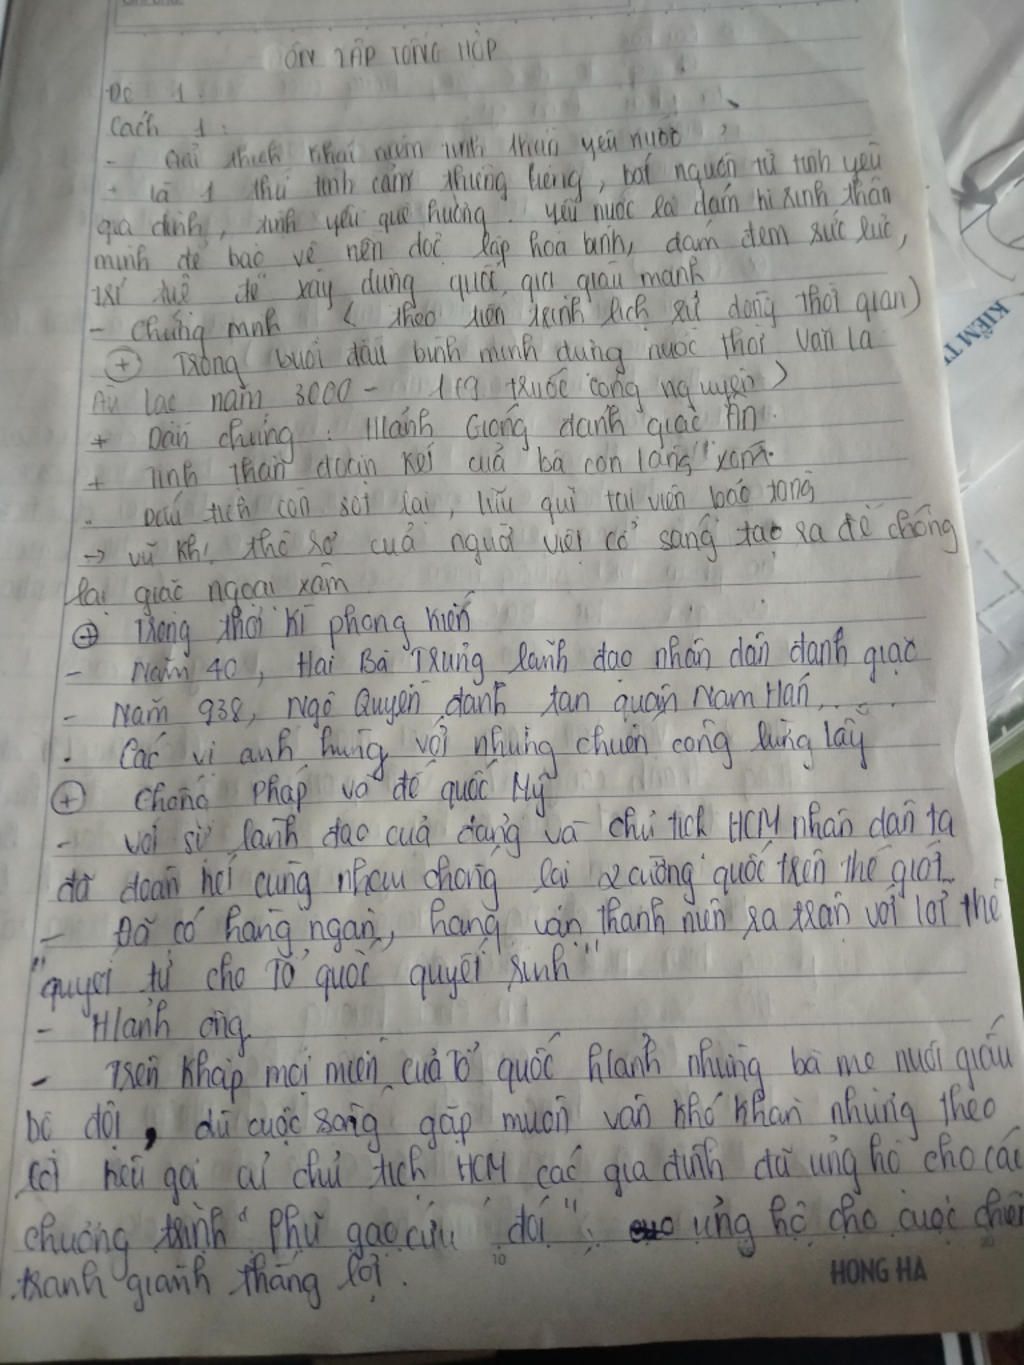 ÔN TẬP TỔNG HỢP
Đề 1:
Cách 1:
- Giải thích khái niệm tinh thần yêu nước
+ là 1 thứ tình cảm thiêng liêng, bắt nguồn từ tình yêu
gia đình, tình yêu quê hương. Yêu nước là dám hi sinh thân
mình để bảo vệ nền độc lập hoà bình, dám đem sức lực,
trí tuệ để xây dựng quốc gia giàu mạnh
- Chứng minh ( theo tiến trình lịch sử dòng thời gian)
+ Trong buổi đầu bình minh dựng nước thời Văn La
Âu lạc năm 3000 - 179 trước công nguyên >
+ Dẫn chứng: thánh Gióng đánh giặc Ân.
+ Tinh thần đoàn kết cuả bà con làng xóm.
- Dấu tích còn sót lại, lưu giữ tại viện bảo tàng
→ vũ khí thô sơ cuả người việt cổ sáng tạo ra để chống
lại giặc ngoại xâm
+ Trong thời kì phong kiến
- Năm 40, Hai Bà Trưng lãnh đạo nhân dân đánh giặc
- Năm 938, Ngô Quyền đánh tan quân Nam Hán,....
- Các vị anh hùng với những chiến công lừng lẫy
+ chống Pháp và đế quốc Mỹ
- với sự lãnh đạo cuả đảng và chủ tịch HCM nhân dân ta
đã đoàn kết cùng nhau chống lại 2 cường quốc trên thế giới
- Đã có hàng ngàn, hàng vạn thanh niên ra trận với lời thề
"quyết tử cho Tổ quốc quyết sinh"
- Hành ông.
- Trên khắp mọi miền cuả Tổ quốc hành những bà mẹ nuôi giấu
bộ đội, dù cuộc sống gặp muôn vàn khó khăn nhưng theo
lời kêu gọi củ chủ tịch HCM các gia đình đã ủng hộ cho các
chương trình "Phũ gạo cứu đói", ủng hộ cho cuộc chiến
tranh giành thắng lợi.
HONG HA
KIỂM T